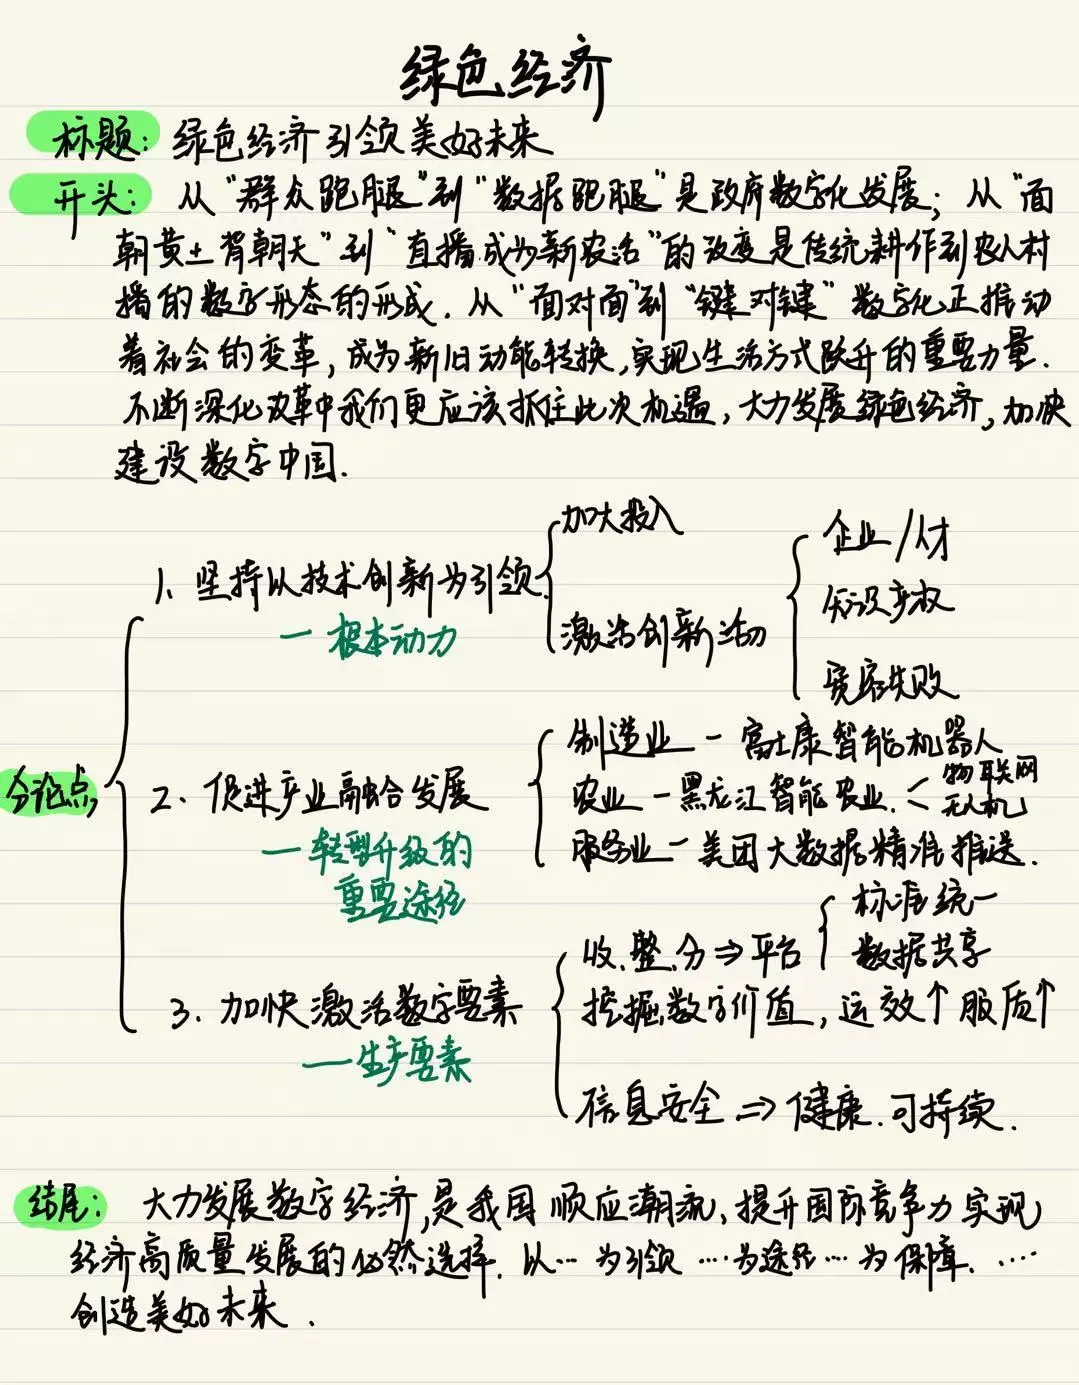 绿色经济
标题：绿色经济引领美好未来
开头：从“群众跑腿”到“数据跑腿”是政府数字化发展；从“面
朝黄土背朝天”到“直播成为新农活”的改变是传统耕作到农人村
播的数字形态的形成．从“面对面”到“键对键”数字化正推动
着社会的变革，成为新旧动能转换，实现生活方式跃升的重要力量．
不断深化改革中我们更应该抓住此次机遇，大力发展绿色经济，加快
建设数字中国．
分论点
1、坚持以技术创新为引领．
一 根本动力
加大投入
激活创新活力
企业/人才
知识产权
宽容失败
2、促进产业融合发展
一转型升级的
重要途径
制造业 一 富士康智能机器人
农业 一 黑龙江智能农业．< 物联网
无人机
服务业 一 美团大数据精准推送．
3、加快激活数字要素
一生产要素
收、整、分⇒平台
标准统一
数据共享
挖掘数字价值，运效↑服质↑
信息安全 ⇒ 健康．可持续．
结尾：大力发展数字经济，是我国顺应潮流、提升国际竞争力实现
经济高质量发展的必然选择．以… 为引领 …为途径… 为保障．……
创造美好未来．